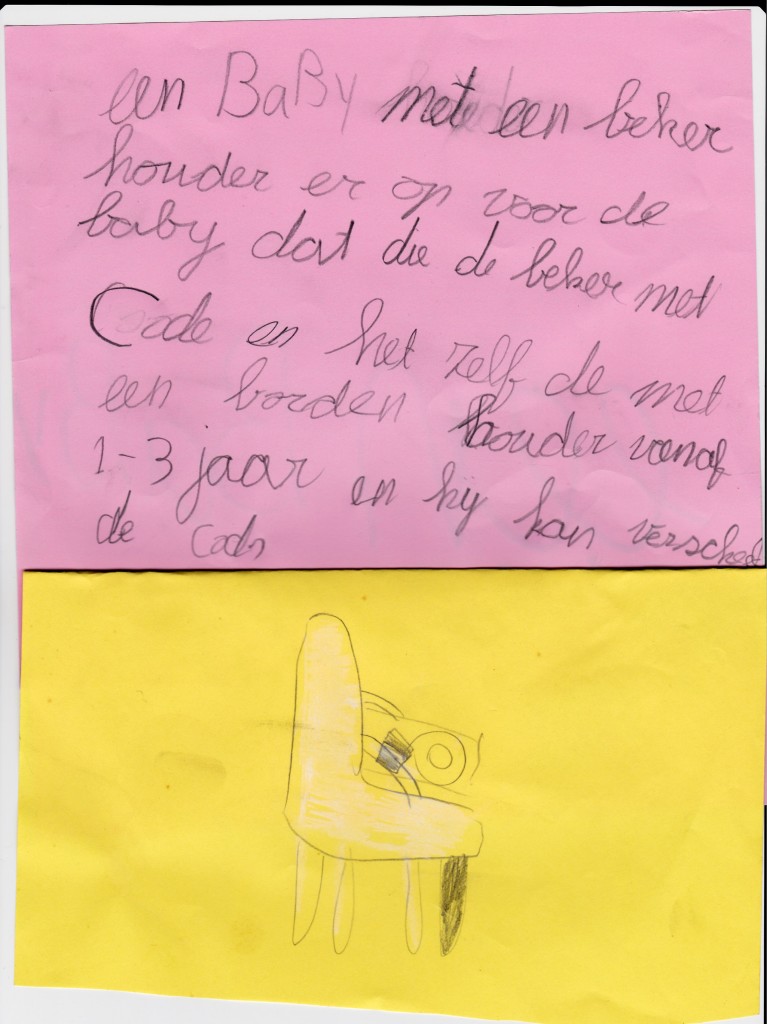 een BaBy met een beker
houder er op voor de
baby dat die de beker met
Code en het zelf de met
een borden houder vanaf
1-3 jaar en hij kan
de